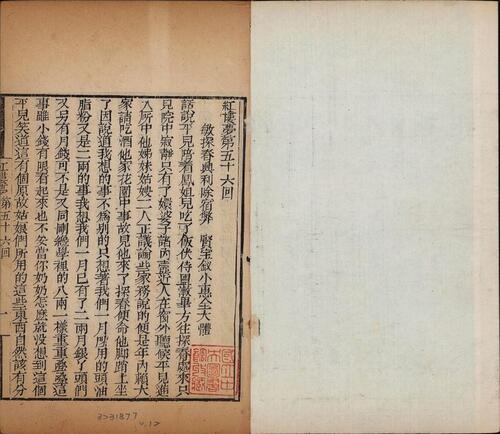 紅樓夢第五十六回
敏探春興利除宿弊 賢寶釵小惠全大體
話說平兒陪着鳳姐兒吃了飯伏侍盥漱畢方往探春處來只
見院中寂靜只有丫嬛婆子諸內壼近人在窗外聽候平兒進
入廳中他姊妹姑嫂三人正議論些家務說的便是年內賴大
家請吃酒他家花園中事故見他來了探春便命他脚踏上坐
了因說道我想的事不爲別的只想着我們一月所用的頭油
脂粉又是二兩的事我想我們一月已有了二兩月銀了頭們
又另有月錢可不是又同剛纔學裡的八兩一樣重重叠叠這
事雖小錢有限看起來也不妥當你奶奶怎麽就沒想到這個
平兒笑道這有個原故姑娘們所用的這些東西自然該有分
紅樓夢 第五十六回
一
3231877
v.12